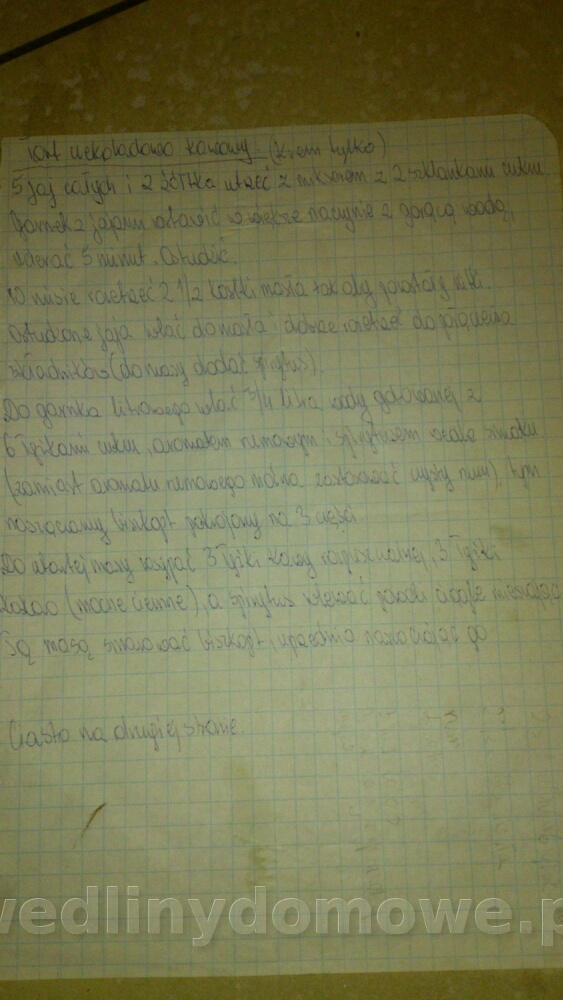 Tort czekoladowo kawowy (krem tylko)
5 jaj całych i 2 żółtka utrzeć z mikserem z 2 szklankami cukru
Garnek z jajami wstawić w większe naczynie z gorącą wodą,
ucierać 5 minut. Ostudzić.
W misie rozetrzeć 2 1/2 kostki masła tak aby powstały nitki.
Ostudzone jaja wlać do masła i dobrze rozetrzeć do połączenia
składników (do masy dodać spirytus).
Do garnka litrowego wlać 3/4 litra wody gotowanej z
6 łyżkami cukru, aromatem rumowym i spirytusem wedle smaku
(zamiast aromatu rumowego można zastosować czysty rum), tym
nasączamy biszkopt pokrojony na 3 części.
Do utartej masy wsypać 3 łyżki kawy rozpuszczalnej, 3 łyżki
kakao (mocne ciemne), a spirytus wlewać powoli ciągle mieszając
Tą masą smarować biszkopt, uprzednio nasączając go
Ciasto na drugiej stronie.
wedlinydomowe.p